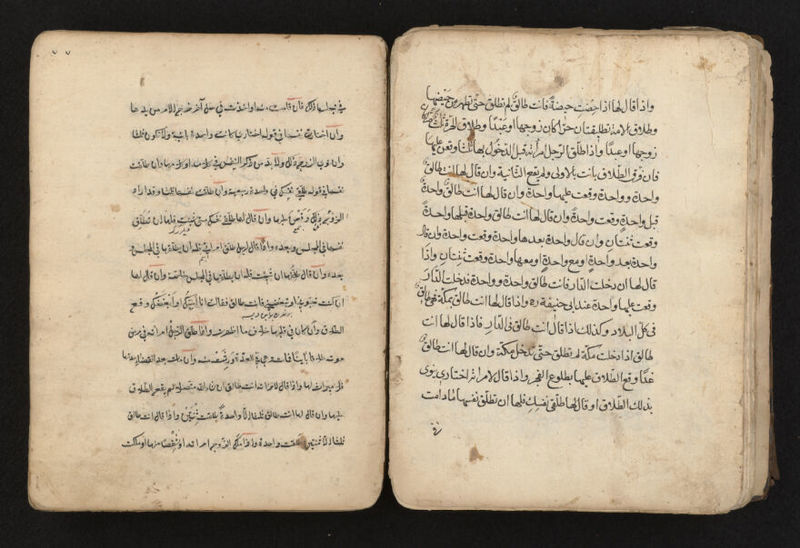 واذا قال لها اذا حضت حيضة فانت طالق لم تطلق حتى تطهر من حيضها
وطلاق الامة تطليقتان حرّا كان زوجها او عبدا وطلاق الحرة ثلث
زوجها او عبدا واذا طلق الرجل امرأته قبل الدخول بها ثلثا وقعن عليها
فان فرق الطلاق بانت بالاولى ولم يقع الثانية وان قال لها انت طالق
واحدة وواحدة وقعت عليها واحدة وان قال لها انت طالق واحدة
قبل واحدة وقعت واحدة وان قال لها انت طالق واحدة قبلها واحدة
وقعت ثنتان وان قال واحدة بعدها واحدة وقعت واحدة وان قال
واحدة بعد واحدة او مع واحدة او معها واحدة وقعت ثنتان واذا
قال لها ان دخلت الدار فانت طالق واحدة وواحدة فدخلت الدار
وقعت عليها واحدة عند ابي حنيفة ره واذا قال لها انت طالق بمكة فهي طالق
في كل البلاد وكذلك اذا قال انت طالق في الدار فاذا قال لها انت
طالق اذا دخلت مكة لم تطلق حتى تدخل مكة وان قال لها انت طالق
غدا وقع الطلاق عليها بطلوع الفجر واذا قال لامرأته اختاري ينوى
بذلك الطلاق او قال لها طلقي نفسك فلها ان تطلق نفسها ما دامت
في
في مجلسها ذلك فان قامت منه او اخذت في عمل آخر خرج الامر من يدها
وان اختارت نفسها في قوله اختاري كانت واحدة باينة ولا يكون ثلثا
وان نوى الزوج ذلك ولا بد من ذكر النفس في كلامه او كلامها وان طلقت
نفسها في قوله طلقي نفسك فهي واحدة رجعية وان طلقت نفسها ثلثا وقد اراد
الزوج ذلك وقعن عليها وان قال لها طلقي نفسك متى شئت فلها ان تطلق
نفسها في المجلس وبعده واذا قال لرجل طلق امرأتي فله ان يطلقها في المجلس و
بعده وان قال طلقها ان شئت فله ان يطلقها في المجلس خاصة وان قال لها
ان كنت تحبيني او تبغضيني فانت طالق فقالت انا احبك او ابغضك وقع
الطلاق وان كان في قلبها خلاف ما اظهرت واذا طلق الرجل امرأته في مرض
موته طلاقا باينا فمات وهي في العدة ورثت منه وان مات بعد انقضاء عدتها
فلا ميراث لها واذا قال لامرأته انت طالق ان شاء الله متصلا لم يقع الطلاق
عليها وان قال لها انت طالق ثلثا الا واحدة طلقت ثنتين واذا قال انت طالق
ثلثا الا ثنتين طلقت واحدة واذا ملك الزوج امرأته او شقصا منها او ملكت